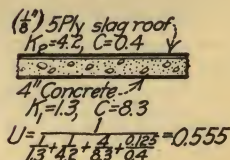 (1/8") 5Ply slag roof
K2=4.2, C=0.4
4" Concrete
K1=1.3, C=8.3
U= 1/(1/1.3+1/4.2+4/8.3+0.125/0.4) =0.555